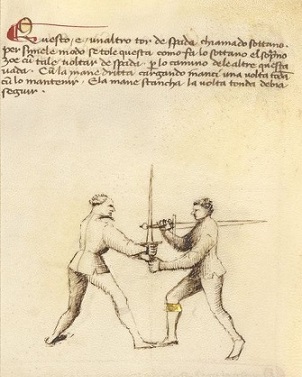 Questo, e, unaltro tor de spada chiamado sottano.
per simele modo se tole questa como fa lo sottano el soprano
Zoe cum tale voltar de spada. per lo camino dele altre questa
vada. Cum la mane dritta cargando inanci una volta tonda
cum lo mantenir. E la mane stancha la volta tonda debia
seguir.